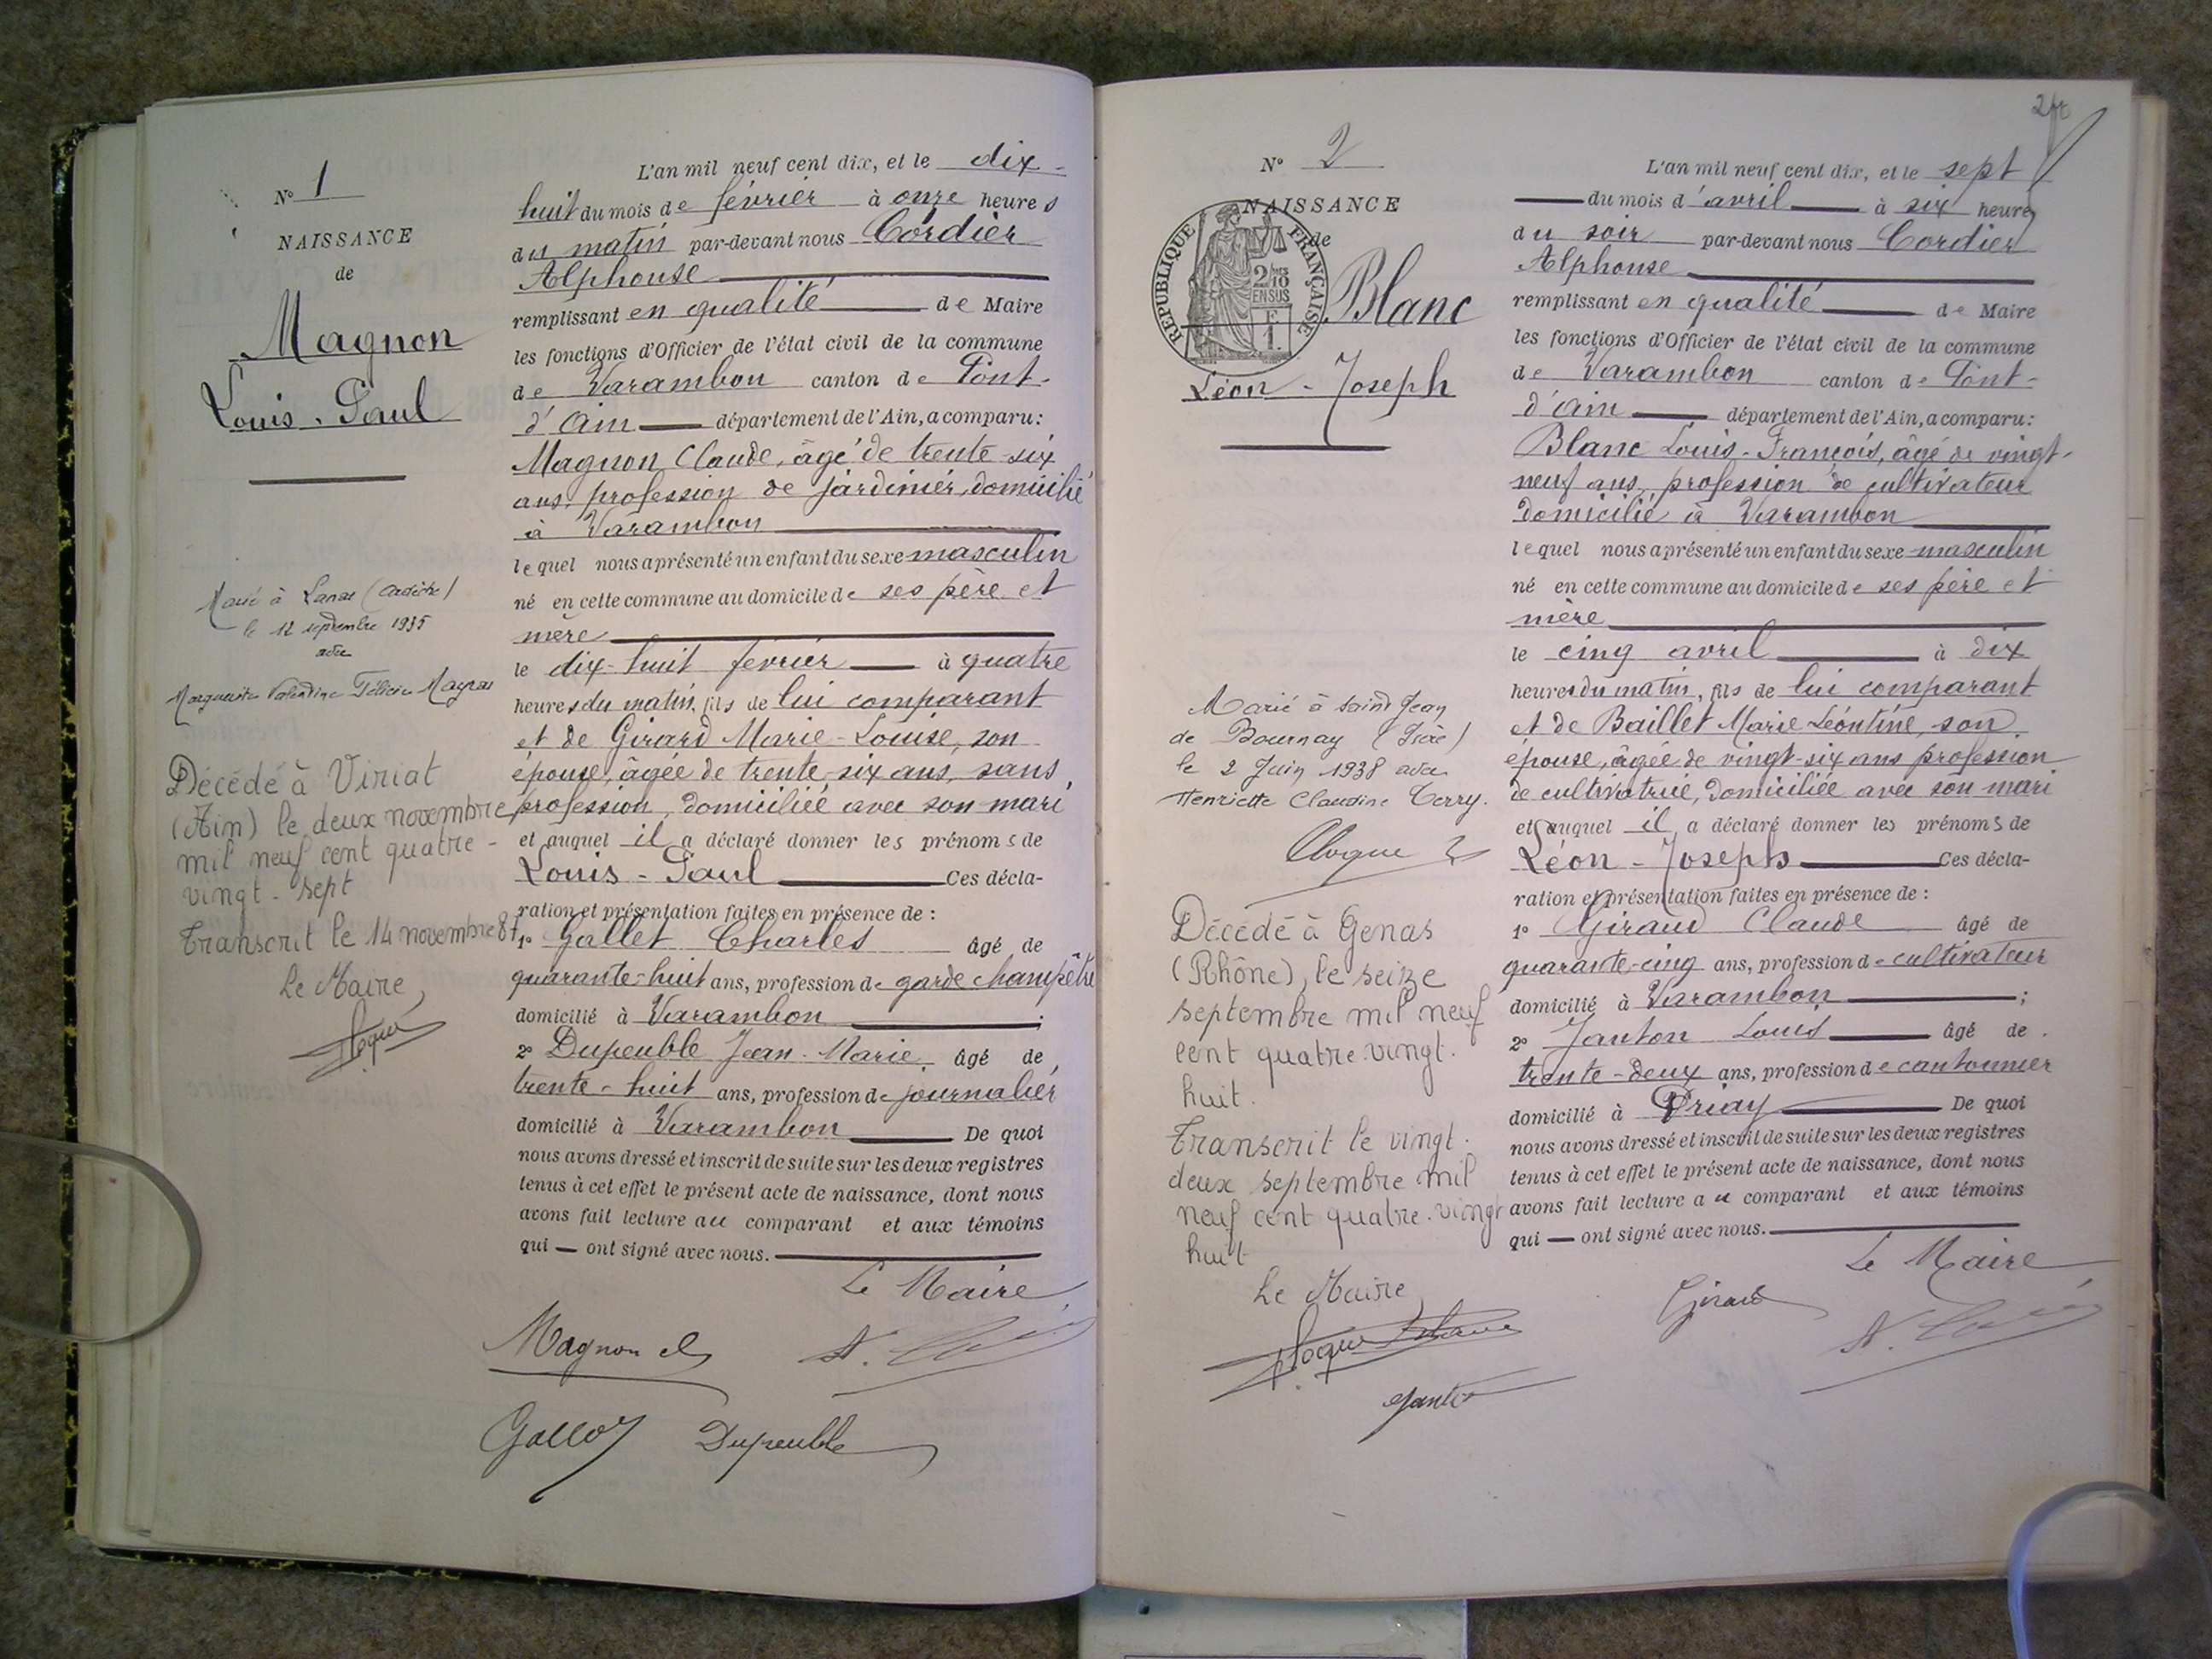 N° 1
NAISSANCE
de
Magnon
Louis-Paul
Marié à Lanas (Ardèche)
le 12 septembre 1935
avec
Marguerite Valentine Félicie
Décédé à Viriat
(Ain) le deux novembre
mil neuf cent quatre-
vingt-sept
Transcrit le 14 novembre 87
Le Maire,
L'an mil neuf cent dix, et le dix-
huit du mois de février à onze heures
du matin par-devant nous Cordier
Alphonse
remplissant en qualité de Maire
les fonctions d'Officier de l'état civil de la commune
de Varambon canton de Pont-
d'Ain département de l'Ain, a comparu:
Magnon Claude, âgé de trente-six
ans, profession de jardinier, domicilié
à Varambon
lequel nous a présenté un enfant du sexe masculin
né en cette commune au domicile de ses père et
mère
le dix-huit février à quatre
heures du matin, fils de lui comparant
et de Girard Marie-Louise, son
épouse, âgée de trente-six ans, sans
profession, domiciliée avec son mari
et auquel il a déclaré donner les prénoms de
Louis-Paul Ces décla-
ration et présentation faites en présence de :
1° Gallet Charles âgé de
quarante-huit ans, profession de garde champêtre
domicilié à Varambon ;
2° Dupeuble Jean-Marie, âgé de
trente-huit ans, profession de journalier
domicilié à Varambon De quoi
nous avons dressé et inscrit de suite sur les deux registres
tenus à cet effet le présent acte de naissance, dont nous
avons fait lecture au comparant et aux témoins
qui ont signé avec nous.
Le Maire,
Magnon cl
Gallet Dupeuble
2
N° 2
NAISSANCE
de
RÉPUBLIQUE FRANÇAISE
2/10
EN SUS
1.
Blanc
Léon-Joseph
Marié à Saint Jean
de Bournay (Isère)
le 2 Juin 1938 avec
Henriette Claudine Terry.
Décédé à Genas
(Rhône), le seize
septembre mil neuf
cent quatre-vingt-
huit.
Transcrit le vingt-
deux septembre mil
neuf cent quatre-vingt
huit
Le Maire,
L'an mil neuf cent dix, et le sept
du mois d'avril à six heures
du soir par-devant nous Cordier
Alphonse
remplissant en qualité de Maire
les fonctions d'Officier de l'état civil de la commune
de Varambon canton de Pont-
d'Ain département de l'Ain, a comparu:
Blanc Louis-François, âgé de vingt-
neuf ans, profession de cultivateur
domicilié à Varambon
lequel nous a présenté un enfant du sexe masculin
né en cette commune au domicile de ses père et
mère
le cinq avril à dix
heures du matin, fils de lui comparant
et de Baillet Marie Léontine, son
épouse, âgée de vingt-six ans profession
de cultivatrice, domiciliée avec son mari
et auquel il a déclaré donner les prénoms de
Léon-Joseph Ces décla-
ration et présentation faites en présence de :
1° Giraud Claude âgé de
quarante-cinq ans, profession de cultivateur
domicilié à Varambon ;
2° Janton Louis âgé de
trente-deux ans, profession de cantonnier
domicilié à Priay De quoi
nous avons dressé et inscrit de suite sur les deux registres
tenus à cet effet le présent acte de naissance, dont nous
avons fait lecture au comparant et aux témoins
qui ont signé avec nous.
Le Maire
Giraud